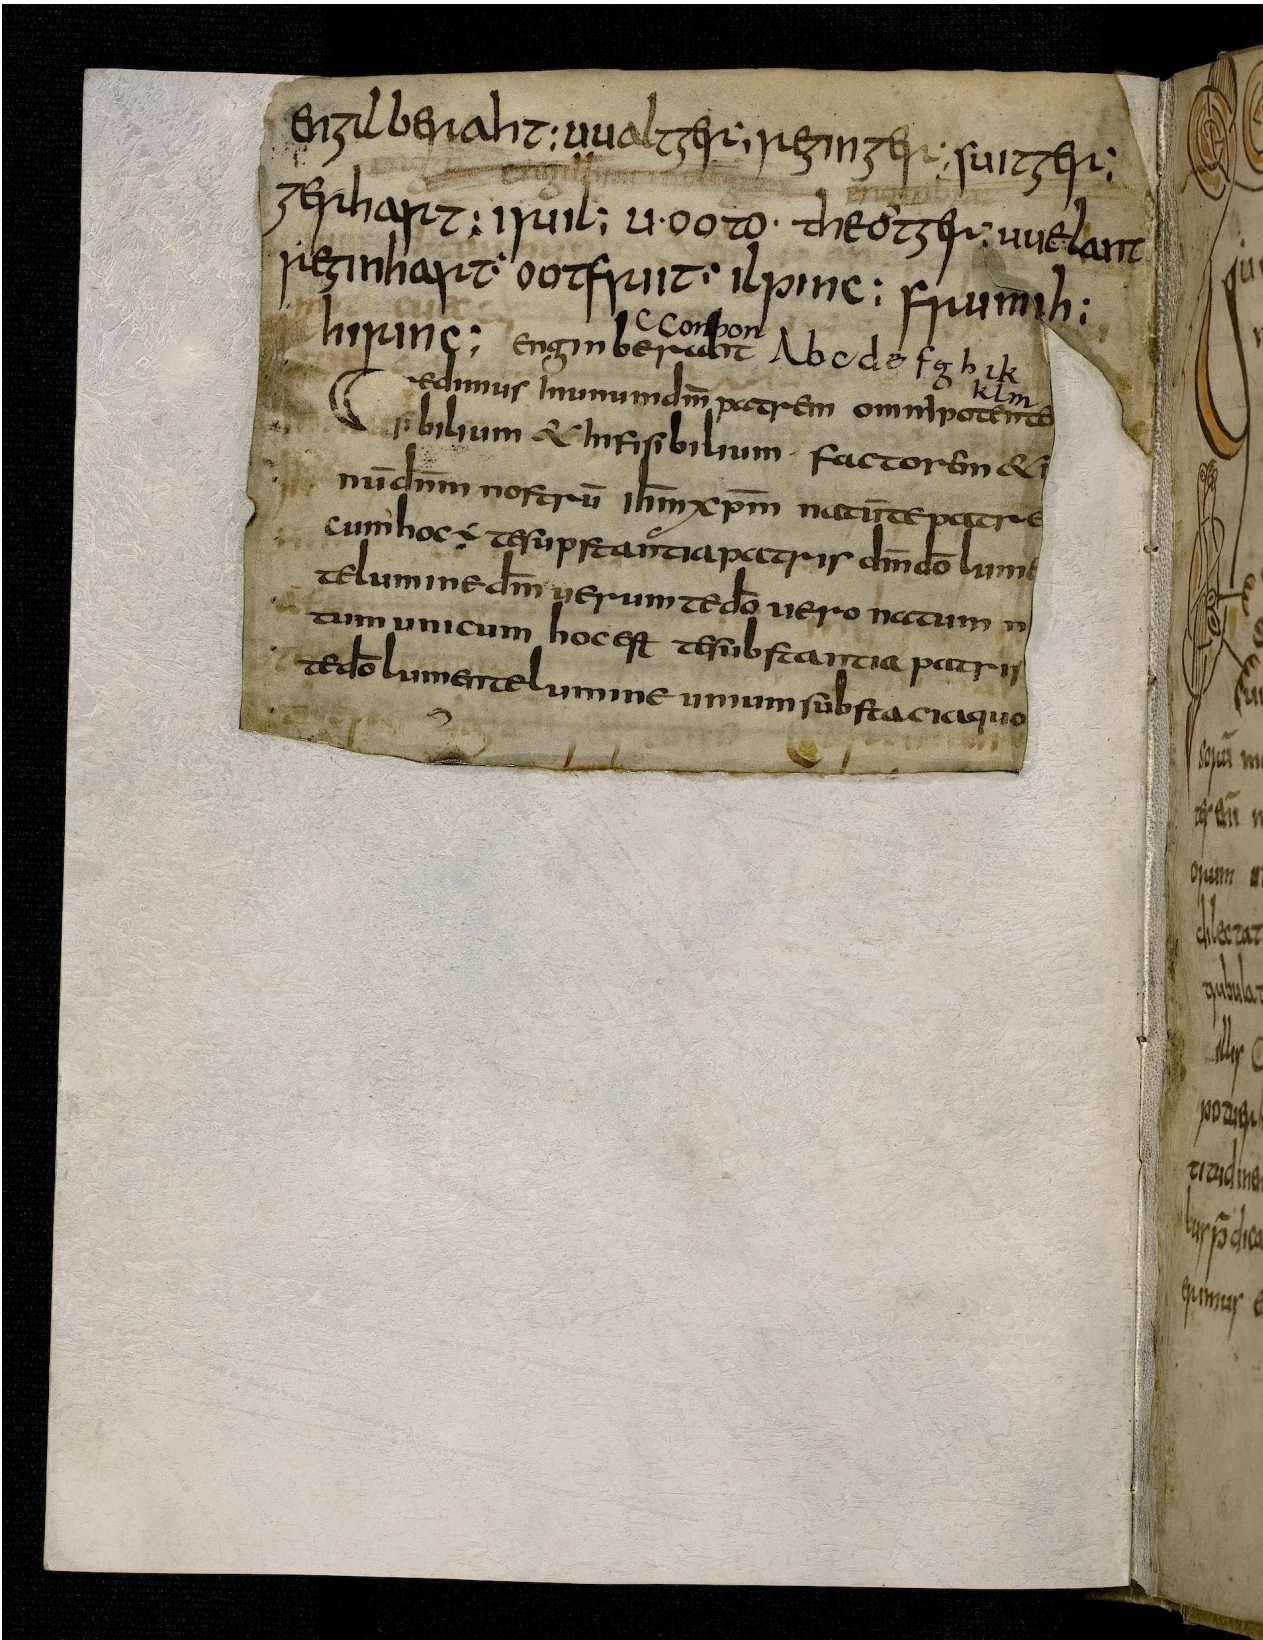 engilberaht; uualtger; reginger; suitger;
gerhart; isuil; u·ooto· theotger; uuelant
reginhart; ootfruit; ilpinc; frumih;
hirinc; enginberaht Abcdefghik
c conpon
klm
Credimus Inunumdm̄ patrem omnipotente
sibilium & Infisibilium · factorem & i
nūdnm̄ nostrū ihm̄xpm̄ natūtepatre
cumhoc ÷ tesupstantiapatris dm̄dō lume
telumine dm̄ uerumtedō uero natum n
tum unicum hoc est tesubstantia patris
tedōlumentelumine unumsubstaciaquo
scpū
orum
dilectat
tribulat
illis
potues
titudine
bus p̄dica
erimus